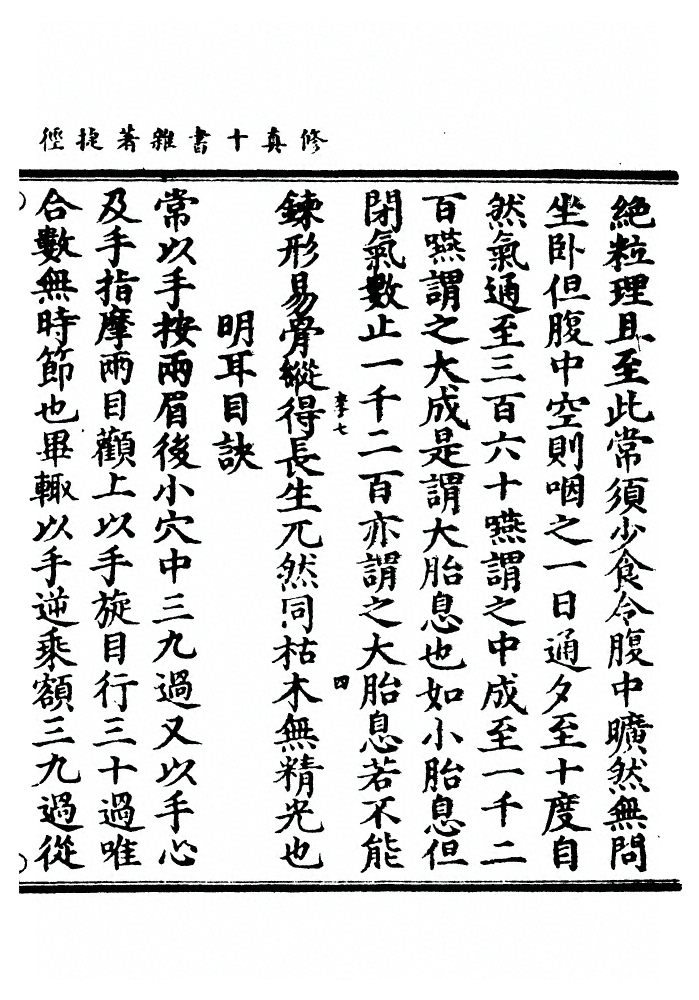 修真十書雜著捷徑
絕粒理且至此常須少食令腹中曠然無問
坐卧但腹中空則咽之一日通夕至十度自
然氣通至三百六十嚥謂之中成至一千二
百嚥謂之大成是謂大胎息也如小胎息但
閉氣數止一千二百亦謂之大胎息若不能
四
鍊形易骨縱得長生兀然同枯木無精光也
明耳目訣
常以手按兩眉後小穴中三九過又以手心
及手指摩兩目顴上以手旋目行三十過唯
合數無時節也畢輙以手逆乘額三九過從